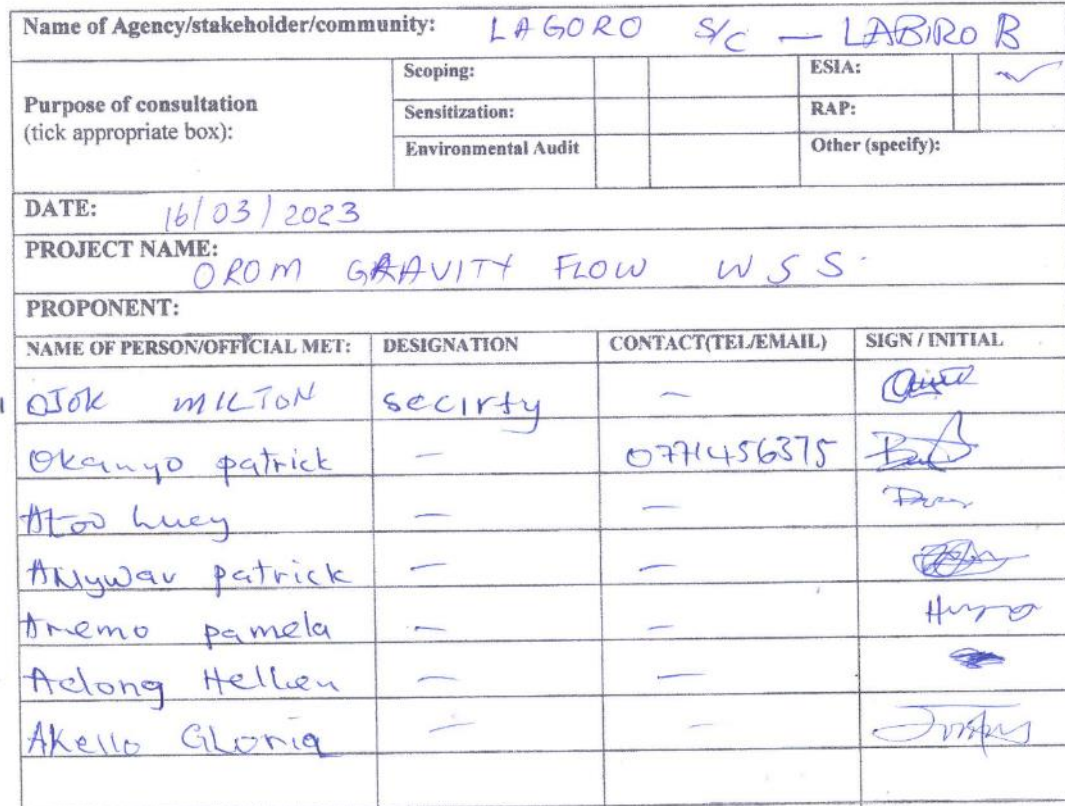 Name of Agency/stakeholder/community: LAGORO S/C — LABIRO B
Purpose of consultation
(tick appropriate box):
Scoping:
ESIA: ✓
Sensitization:
RAP:
Environmental Audit
Other (specify):
DATE: 16/03/2023
PROJECT NAME:
OROM GRAVITY FLOW WSS.
PROPONENT:
NAME OF PERSON/OFFICIAL MET: DESIGNATION CONTACT(TEL/EMAIL) SIGN / INITIAL
OJOK MILTON secirty —
Okanyo patrick — 0771456375
Atoo Lucy — —
Anywar patrick — —
Aremo pamela — —
Adong Hellen — —
Akello Gloria — —